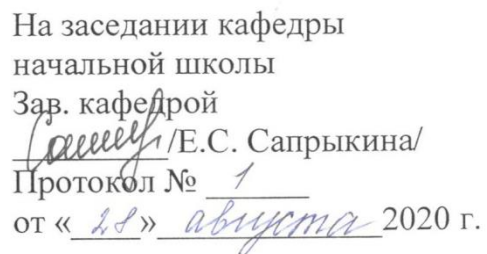 На заседании кафедры
начальной школы
Зав. кафедрой
/Е.С. Сапрыкина/
Протокол № 1
от «28» августа 2020 г.